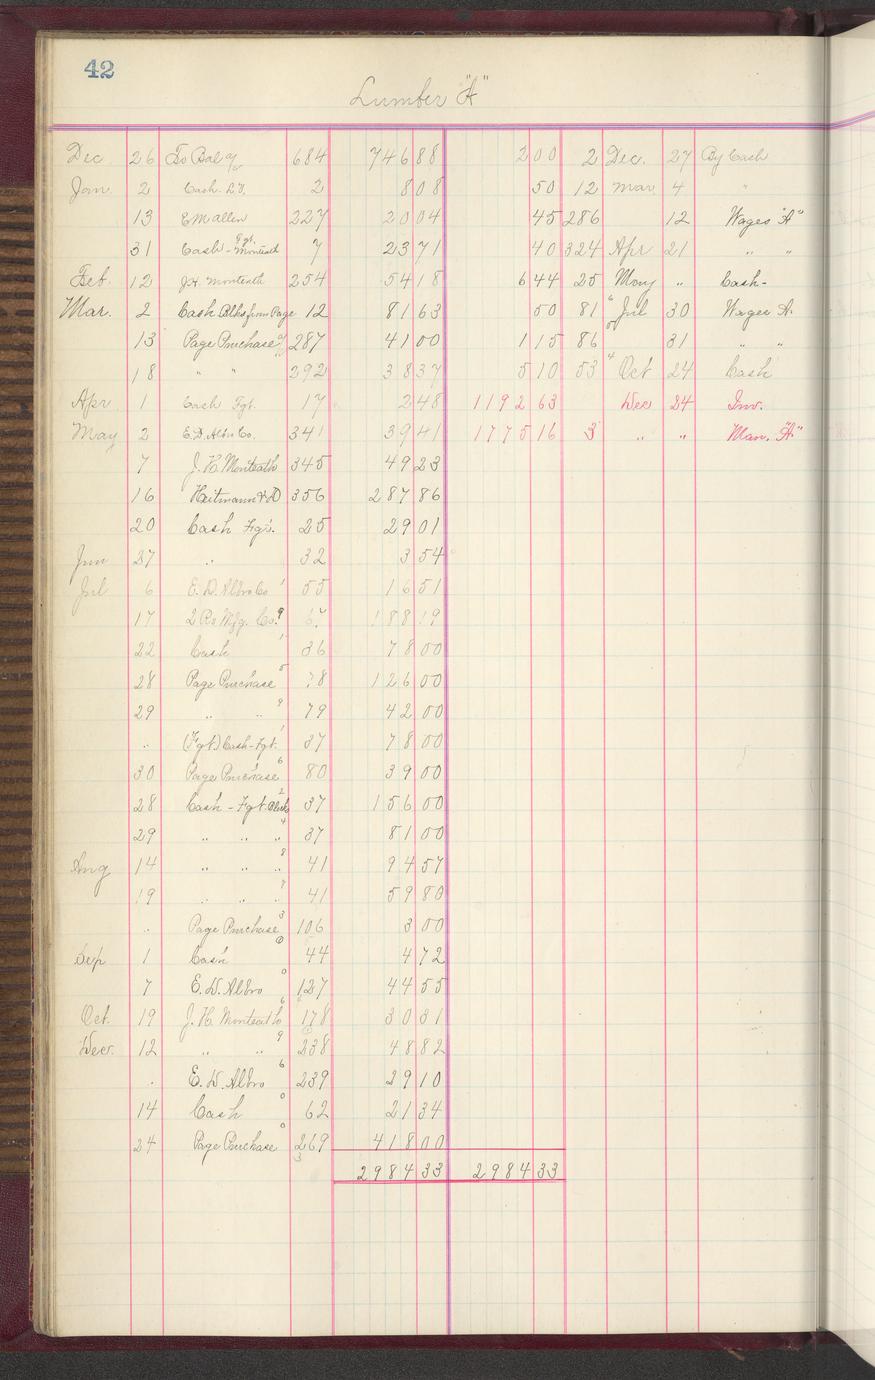 42
Lumber "A"
Dec 26 To Bal 684 746 88 2 00 2 Dec. 27 By Cash
Jan. 2 Cash 2 8 08 50 12 Mar 4 "
13 E M Allen 227 20 04 45 286 12 Wages "A"
31 Cash - Fgt. Monteath 7 23 71 40 324 Apr 21 " "
Feb. 12 J.H. Monteath 254 54 18 6 44 25 May " Cash -
Mar. 2 Cash Blks from Page 12 81 63 50 81 Jul 30 Wages A.
13 Page Purchase 287 41 00 1 15 86 31 " "
18 " " 292 38 37 5 10 53 Oct 24 Cash
Apr 1 Cash Fgt. 17 2 48 1192 63 Dec 24 Inv.
May 2 E.D. Albro Co. 341 39 41 1775 16 3 " " Man. "A"
7 J. H. Monteath 345 49 23
16 Heitmann 356 287 86
20 Cash Fgt. 25 29 01
Jun 27 " 32 3 54
Jul 6 E. D. Albro Co 55 16 51
17 2 Rs Mfg. Co. 188 19
22 Cash 36 78 00
28 Page Purchase 78 126 00
29 " " 79 42 00
" (Fgt.) Cash - Fgt. 37 78 00
30 Page Purchase 80 39 00
28 Cash - Fgt. 37 156 00
29 " " " 37 81 00
Aug 14 " " " 41 94 57
19 " " " 41 59 80
" Page Purchase 106 3 00
Sep 1 Cash 44 4 72
7 E. D. Albro 127 44 55
Oct. 19 J. H. Monteath 178 30 31
Dec. 12 " " 238 48 82
" E. D. Albro 239 29 10
14 Cash 62 21 34
24 Page Purchase 269 418 00
2984 33 2984 33